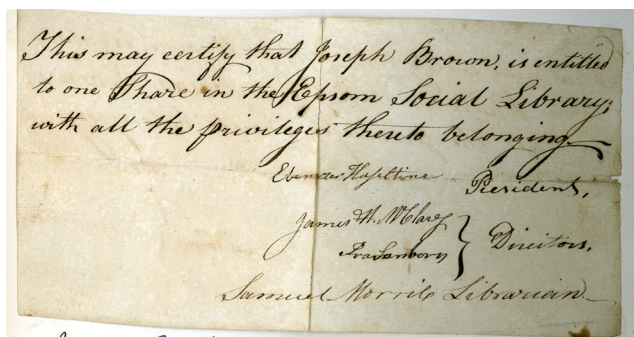 This may certify that Joseph Brown, is entitled
to one Share in the Epsom Social Library;
with all the privileges thereto belonging
Ebenezer Haseltine President,
James H. McClary
Ira Sanborn } Directors,
Samuel Morril Librarian